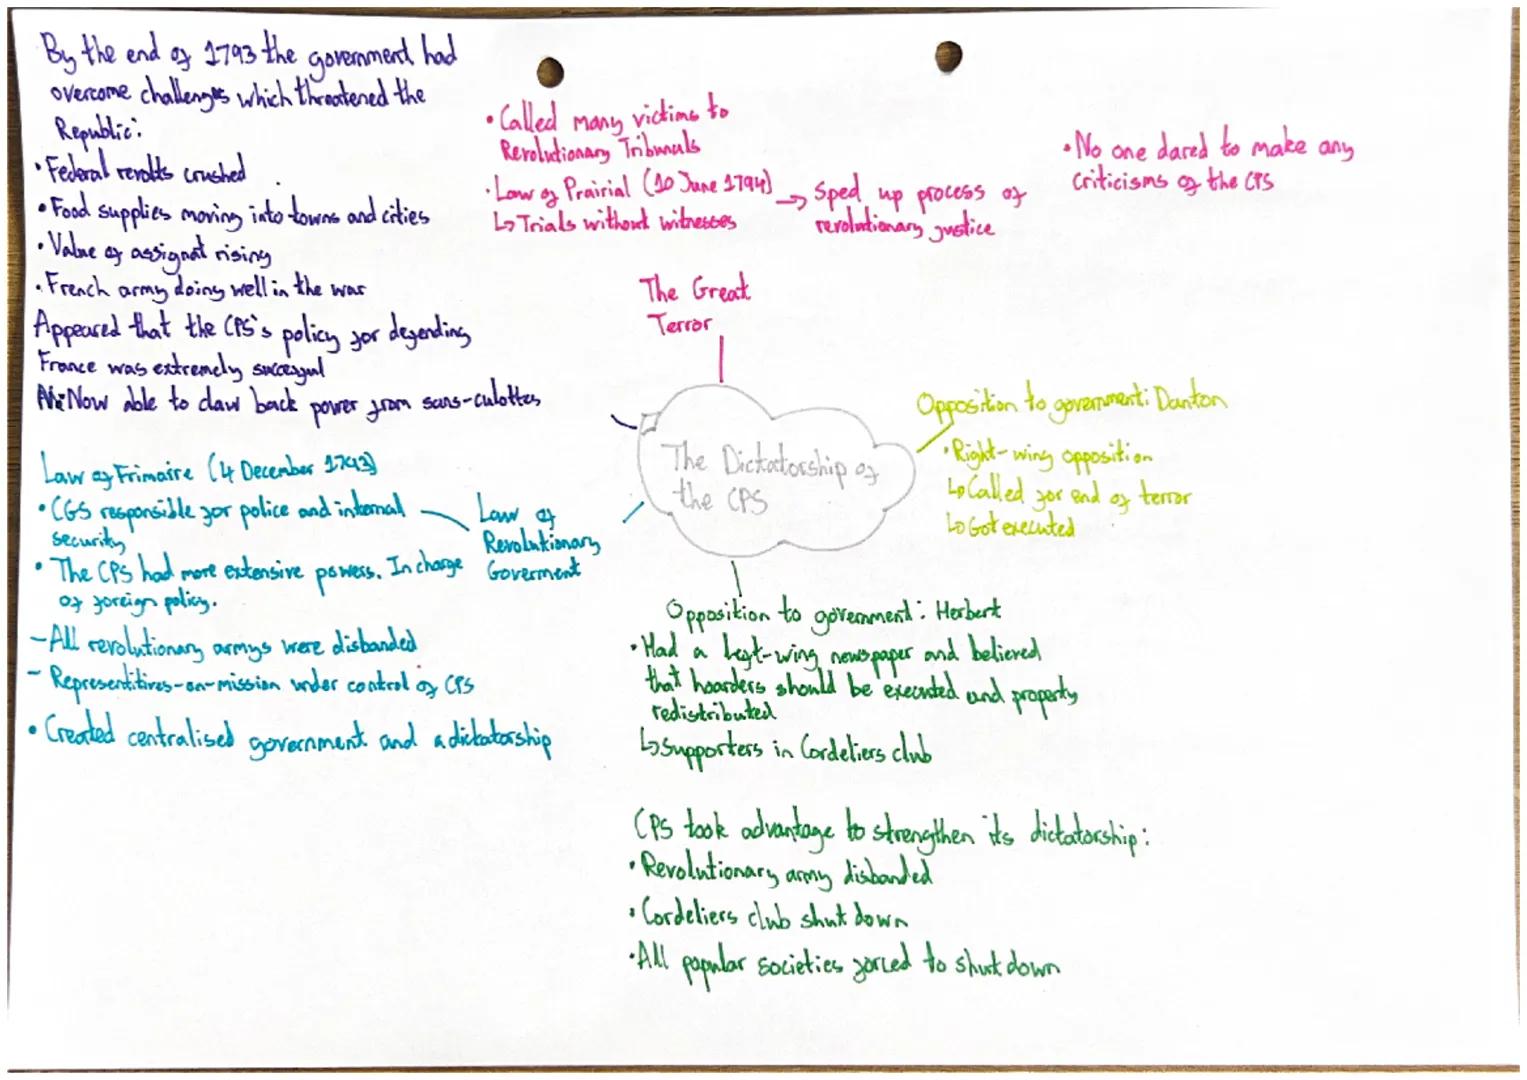 By the end of 1793 the government had
overcome challenges which threatened the
Republic:
• Federal revolts crushed
• Food supplies moving into towns and cities
• Value of assignat rising
• French army doing well in the war
Appeared that the CPS's policy for defending
France was extremely successful
Now able to claw back power from sans-culottes
Law of Frimaire (4 December 1793)
• CGS responsible for police and internal
security
• The CPS had more extensive powers. In charge
of foreign policy.
- All revolutionary armys were disbanded
- Representitives-on-mission under control of CPS
• Created centralised government and a dictatorship
Law of
Revolutionary
Goverment
• Called many victims to
Revolutionary Tribunals
• Law of Prairial (10 June 1794) → Sped up process of
revolutionary justice
↳ Trials without witnesses
• No one dared to make any
criticisms of the CPS
The Great
Terror
The Dictatorship of
the CPS
Opposition to government: Danton
• Right-wing opposition
↳ Called for end of terror
↳ Got executed
Opposition to government: Herbert
• Had a left-wing newspaper and believed
that hoarders should be executed and property
redistributed
↳ Supporters in Cordeliers club
CPS took advantage to strengthen its dictatorship:
• Revolutionary army disbanded
• Cordeliers club shut down
• All popular societies forced to shut down